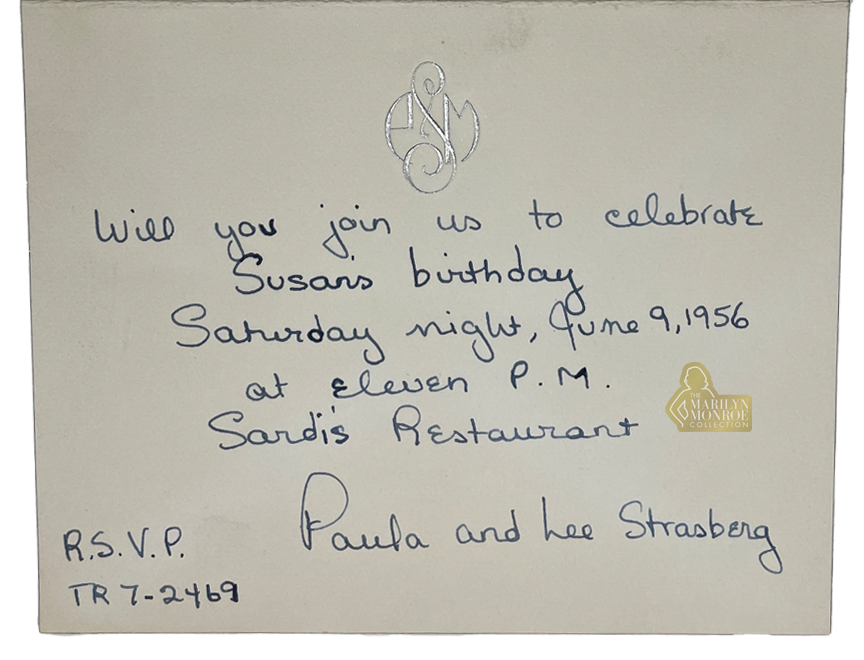 Will you join us to celebrate
Susan's birthday
Saturday night, June 9, 1956
at eleven P.M.
Sardi's Restaurant
THE
MARILYN
MONROE
COLLECTION
Paula and Lee Strasberg
R.S.V.P.
TR 7-2469